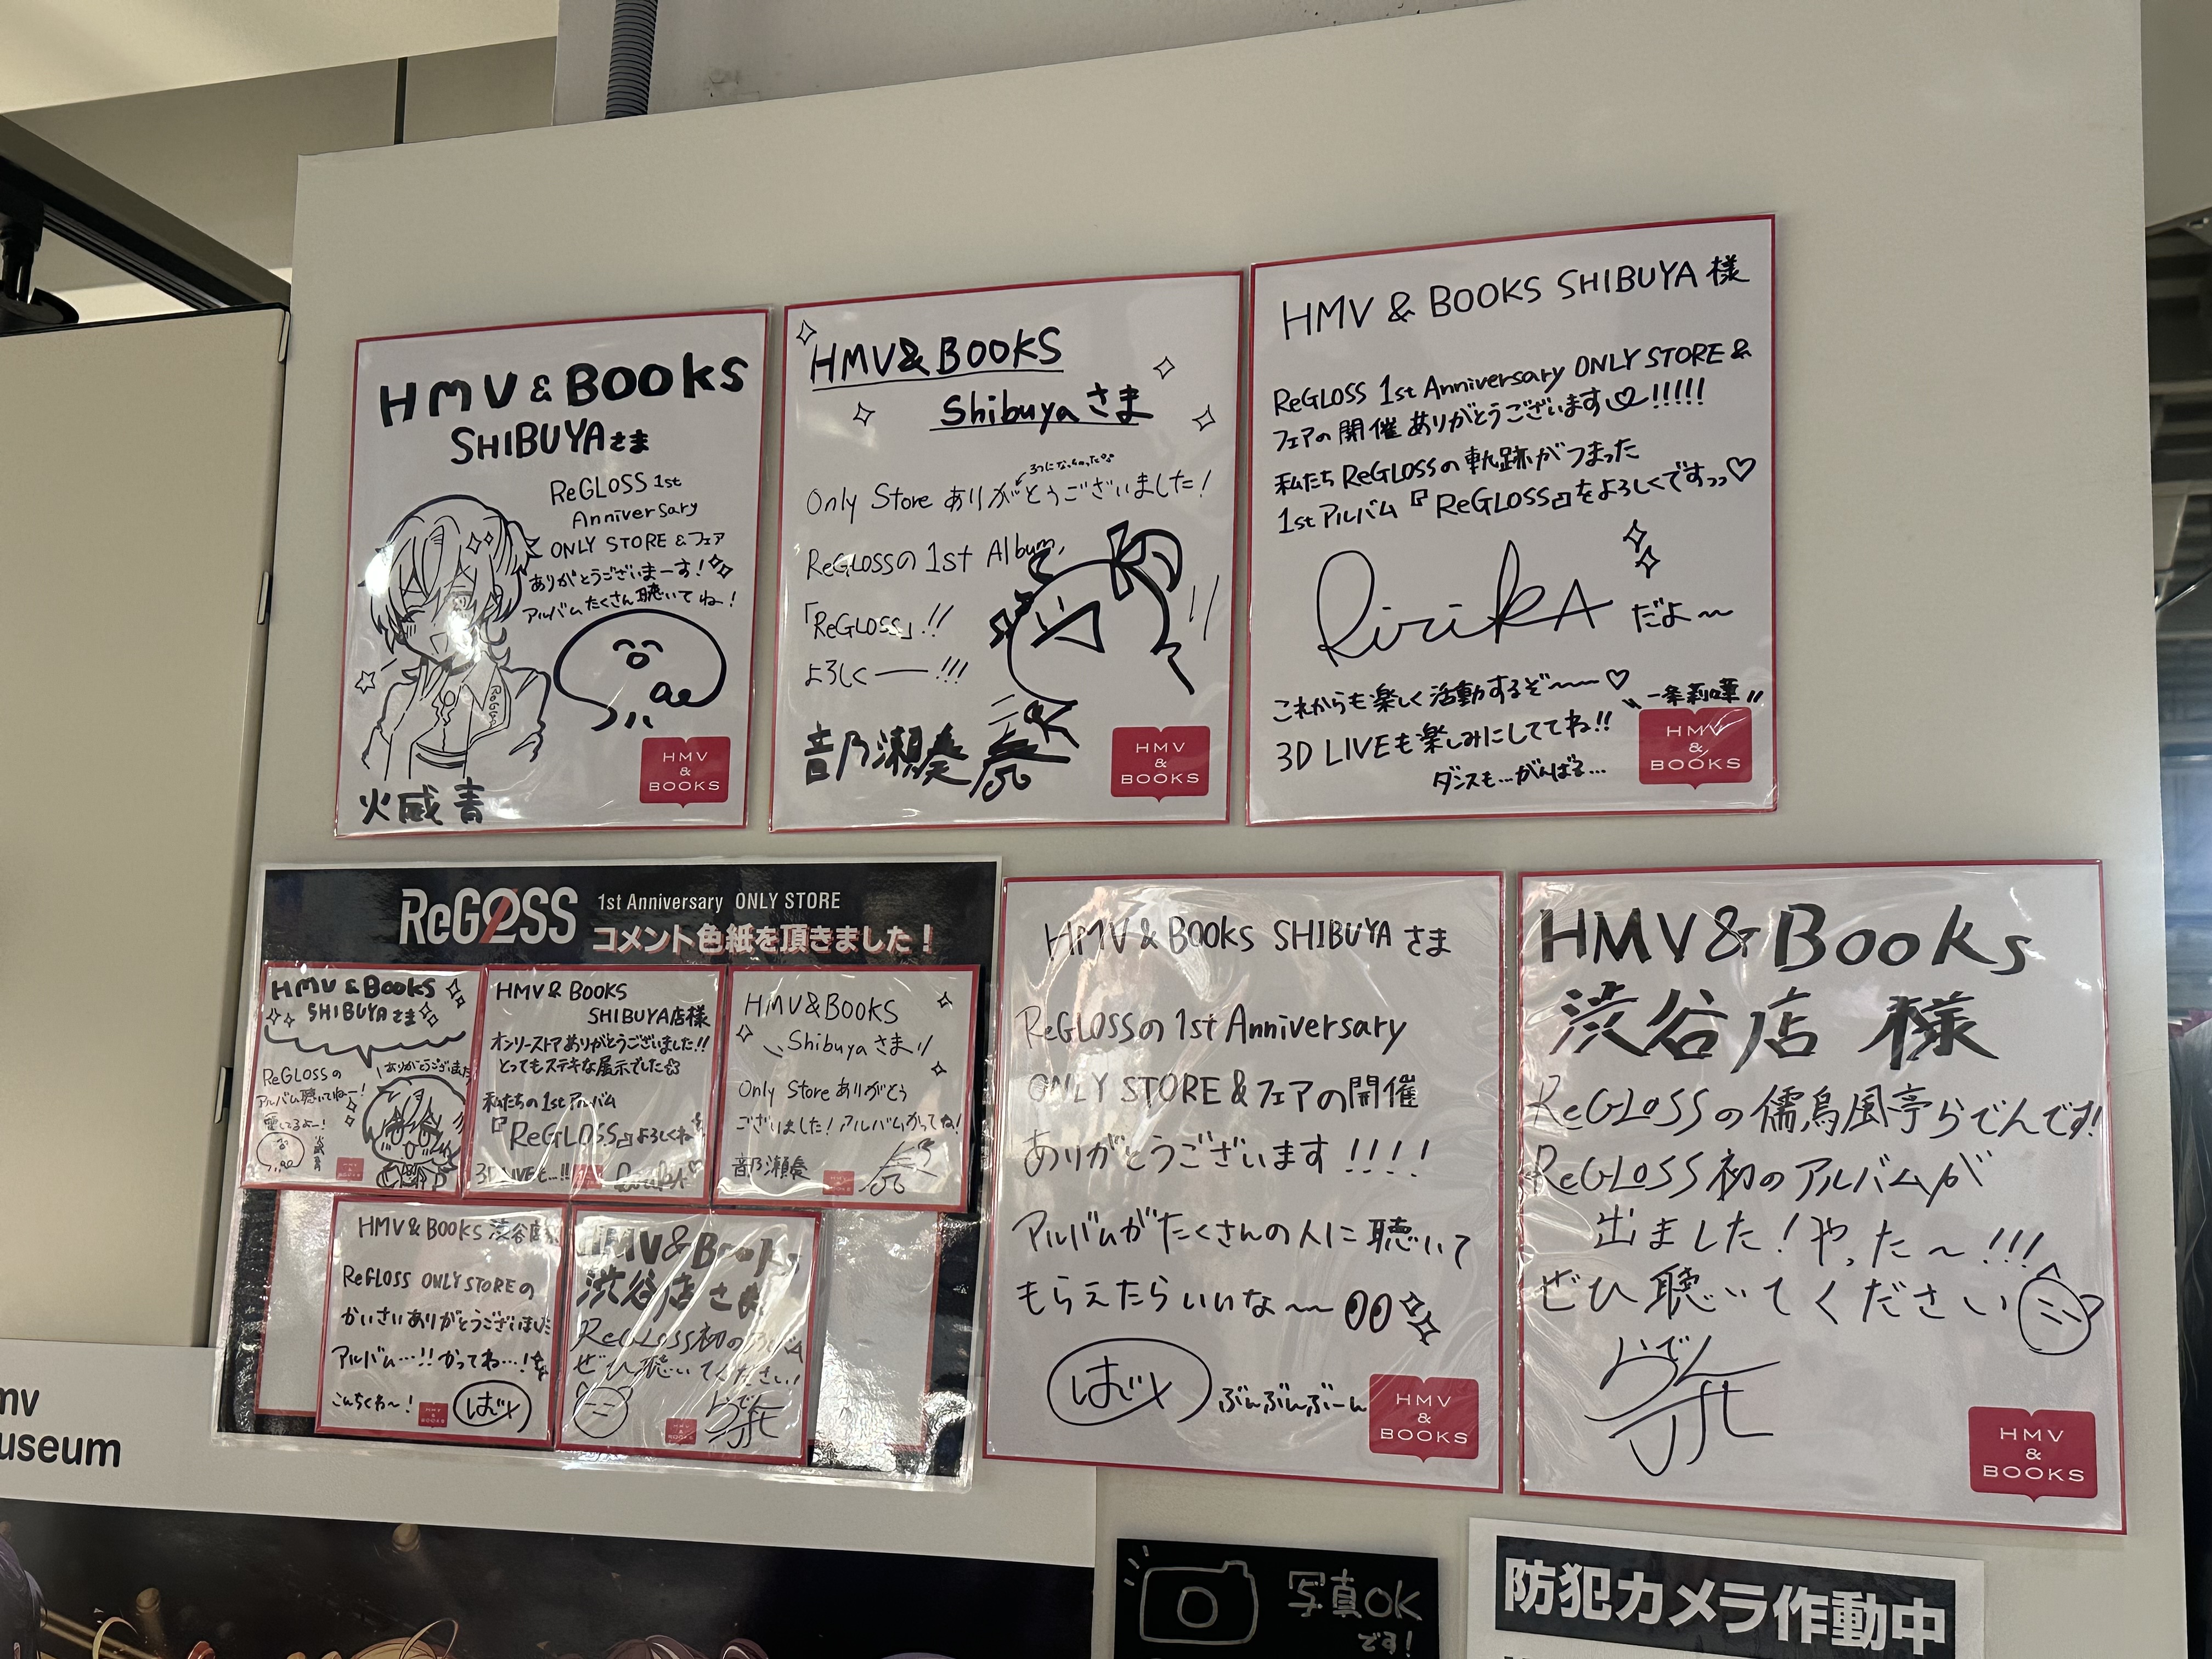 HMV & BOOKS
SHIBUYAさま
ReGLOSS 1st
Anniversary
ONLY STORE & フェア
ありがとうございまーす!
アルバムたくさん聴いてね!
ReGLOSS
火威青
HMV
&
BOOKS
HMV&BOOKS
Shibuyaさま
Only Store ありがとうございました!
ReGLOSSの1st Album,
「ReGLOSS」!!
よろしく──!!!
音乃瀬奏
奏
HMV
&
BOOKS
HMV & BOOKS SHIBUYA 様
ReGLOSS 1st Anniversary ONLY STORE &
フェアの開催ありがとうございます♡!!!!!
私たちReGLOSSの軌跡がつまった
1stアルバム『ReGLOSS』をよろしくですっっ♡
RiriKA だよ〜
これからも楽しく活動するぞ〜〜〜♡
一条莉々華
3D LIVEも楽しみにしててね!!
ダンスも…がんばる…
HMV
&
BOOKS
ReGLOSS 1st Anniversary ONLY STORE
コメント色紙を頂きました!
HMV & BOOKS
SHIBUYAさま
ありがとうございます
ReGLOSSの
アルバム聴いてねー!
愛してるよー!
火威青
HMV & BOOKS
SHIBUYA店様
オンリーストアありがとうございました!!
とってもステキな展示でした
私たちの1stアルバム
『ReGLOSS』よろしくね
3D LIVEも…!!
HMV&BOOKS
Shibuyaさま
Only Store ありがとう
ございました!アルバムかってね!
音乃瀬奏
奏
HMV & BOOKS 渋谷店
ReGLOSS ONLY STOREの
かいさいありがとうございました
アルバム…!!かってね…!
こんちくわ〜!
はじめ
HMV&Books
渋谷店さま
ReGLOSS初のアルバム
ぜひ聴いてください!
らでん
HMV & BOOKS SHIBUYA さま
ReGLOSSの1st Anniversary
ONLY STORE & フェアの開催
ありがとうございます!!!!
アルバムがたくさんの人に聴いて
もらえたらいいな〜〜
はじめ
ぶんぶんぶーん
HMV
&
BOOKS
HMV&Books
渋谷店 様
ReGLOSSの儒烏風亭らでんです!
ReGLOSS初のアルバムが
出ました!やった〜!!!
ぜひ聴いてください
らでん
HMV
&
BOOKS
mv
useum
写真OK
です!
防犯カメラ作動中